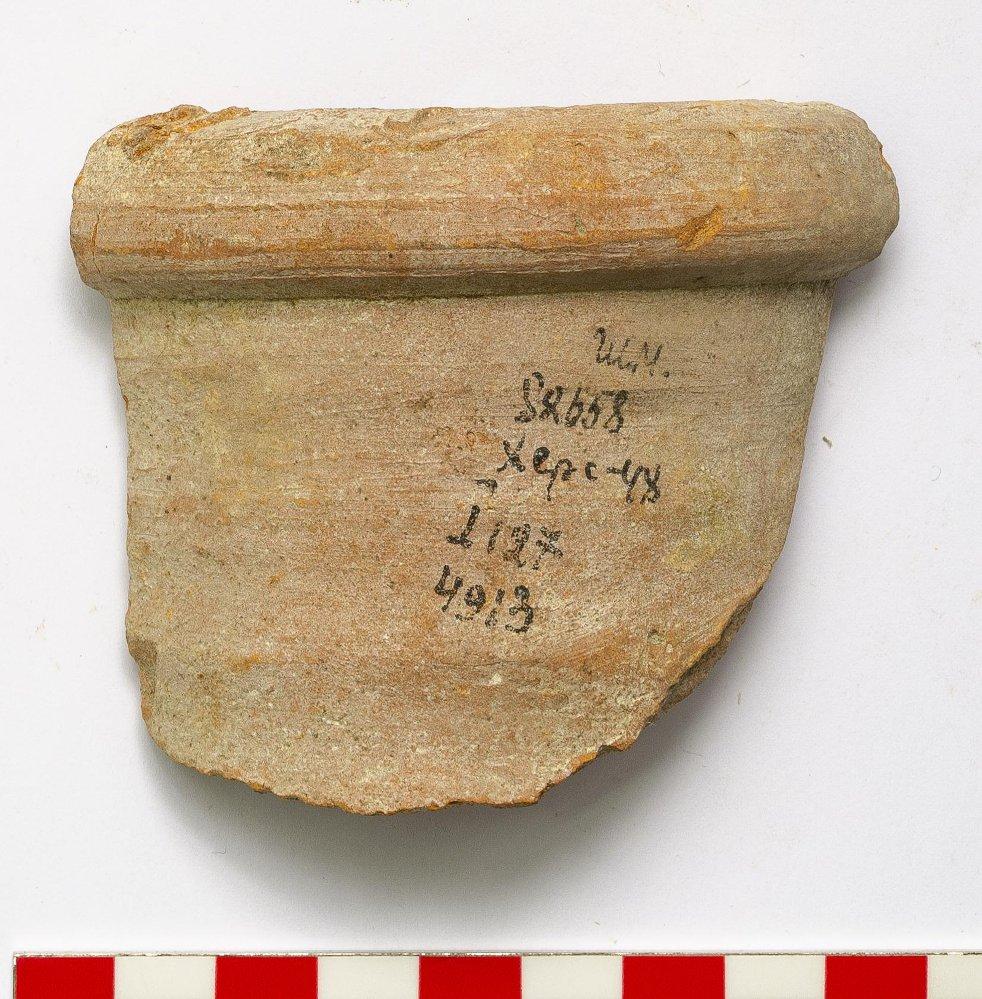 И.М.
82658
Херс-48
I 127
4913